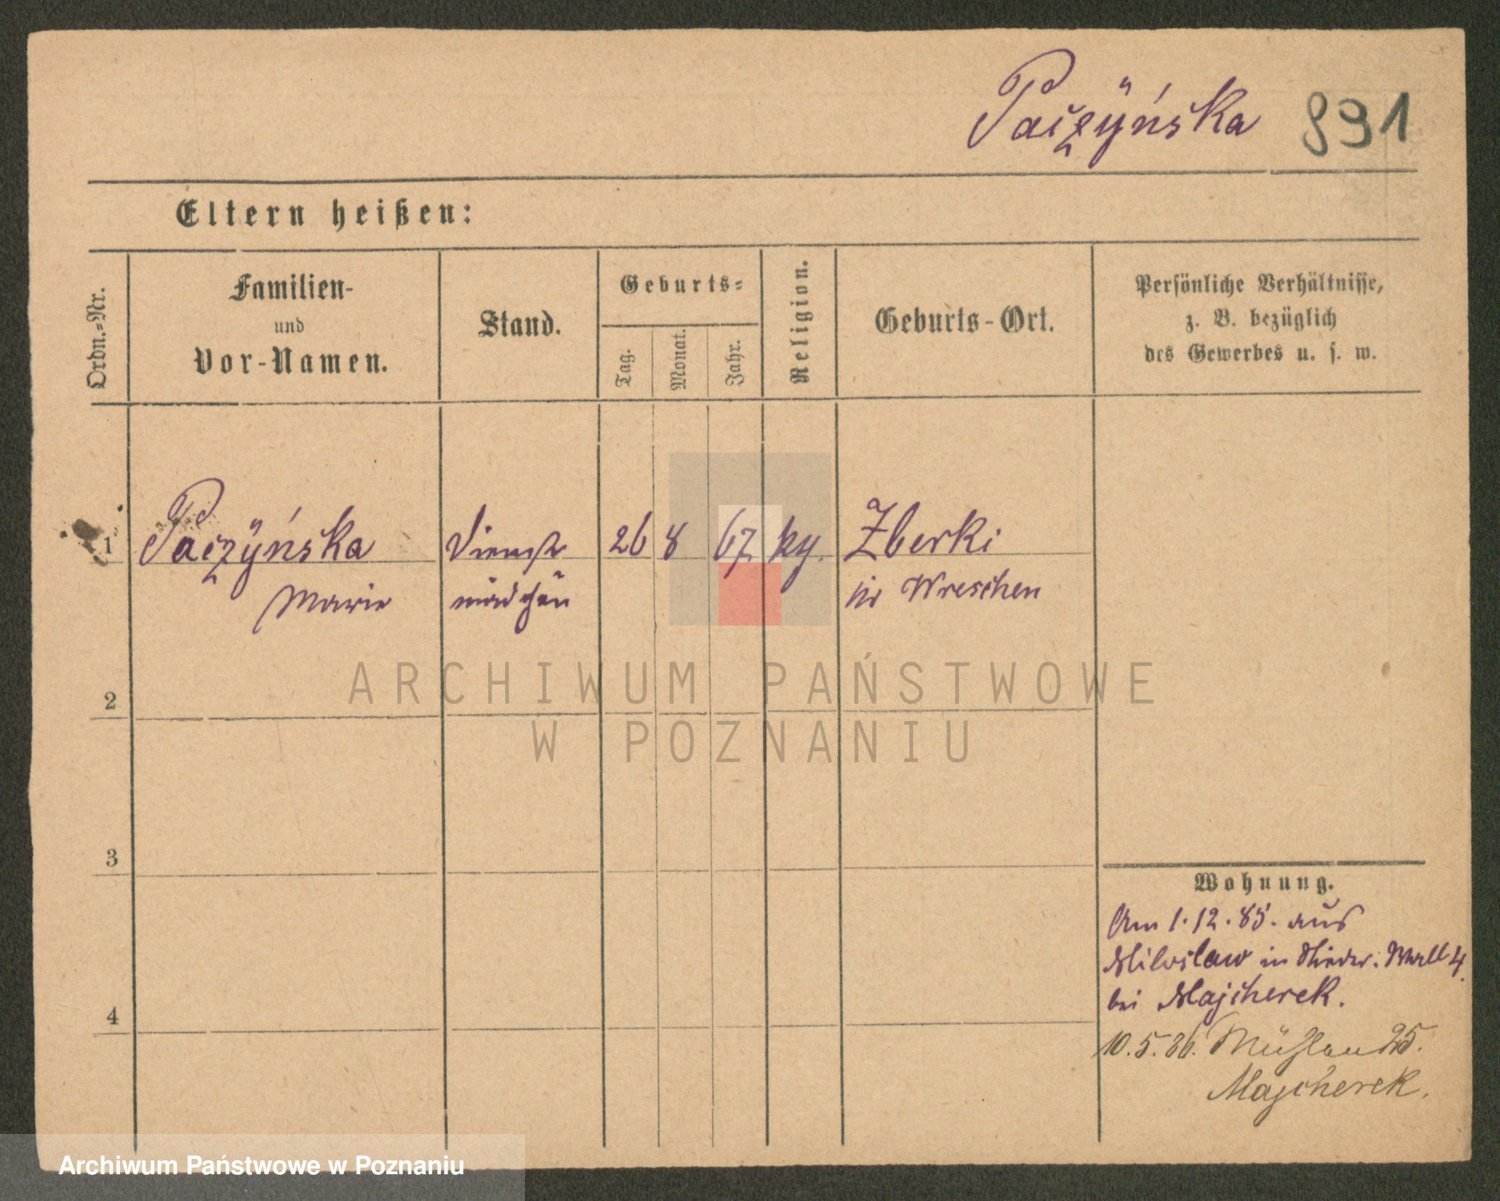 Paczyńska 891
Eltern heißen:
Ordn.-Nr.
Familien-
und
Vor-Namen.
Stand.
Geburts-
Tag.
Monat.
Jahr.
Religion.
Geburts-Ort.
Persönliche Verhältnisse,
z. B. bezüglich
des Gewerbes u. s. w.
1 Paczyńska Dienst 26 8 67 Zberki
Marie mädchen in Wreschen
ARCHIWUM PAŃSTWOWE
W POZNANIU
2
3
4
Wohnung.
Am 1.12.85. aus
Miloslaw in Nieder. Wall 4.
bei Majcherek.
10.5.86. Mühlen 25.
Majcherek.
Archiwum Państwowe w Poznaniu